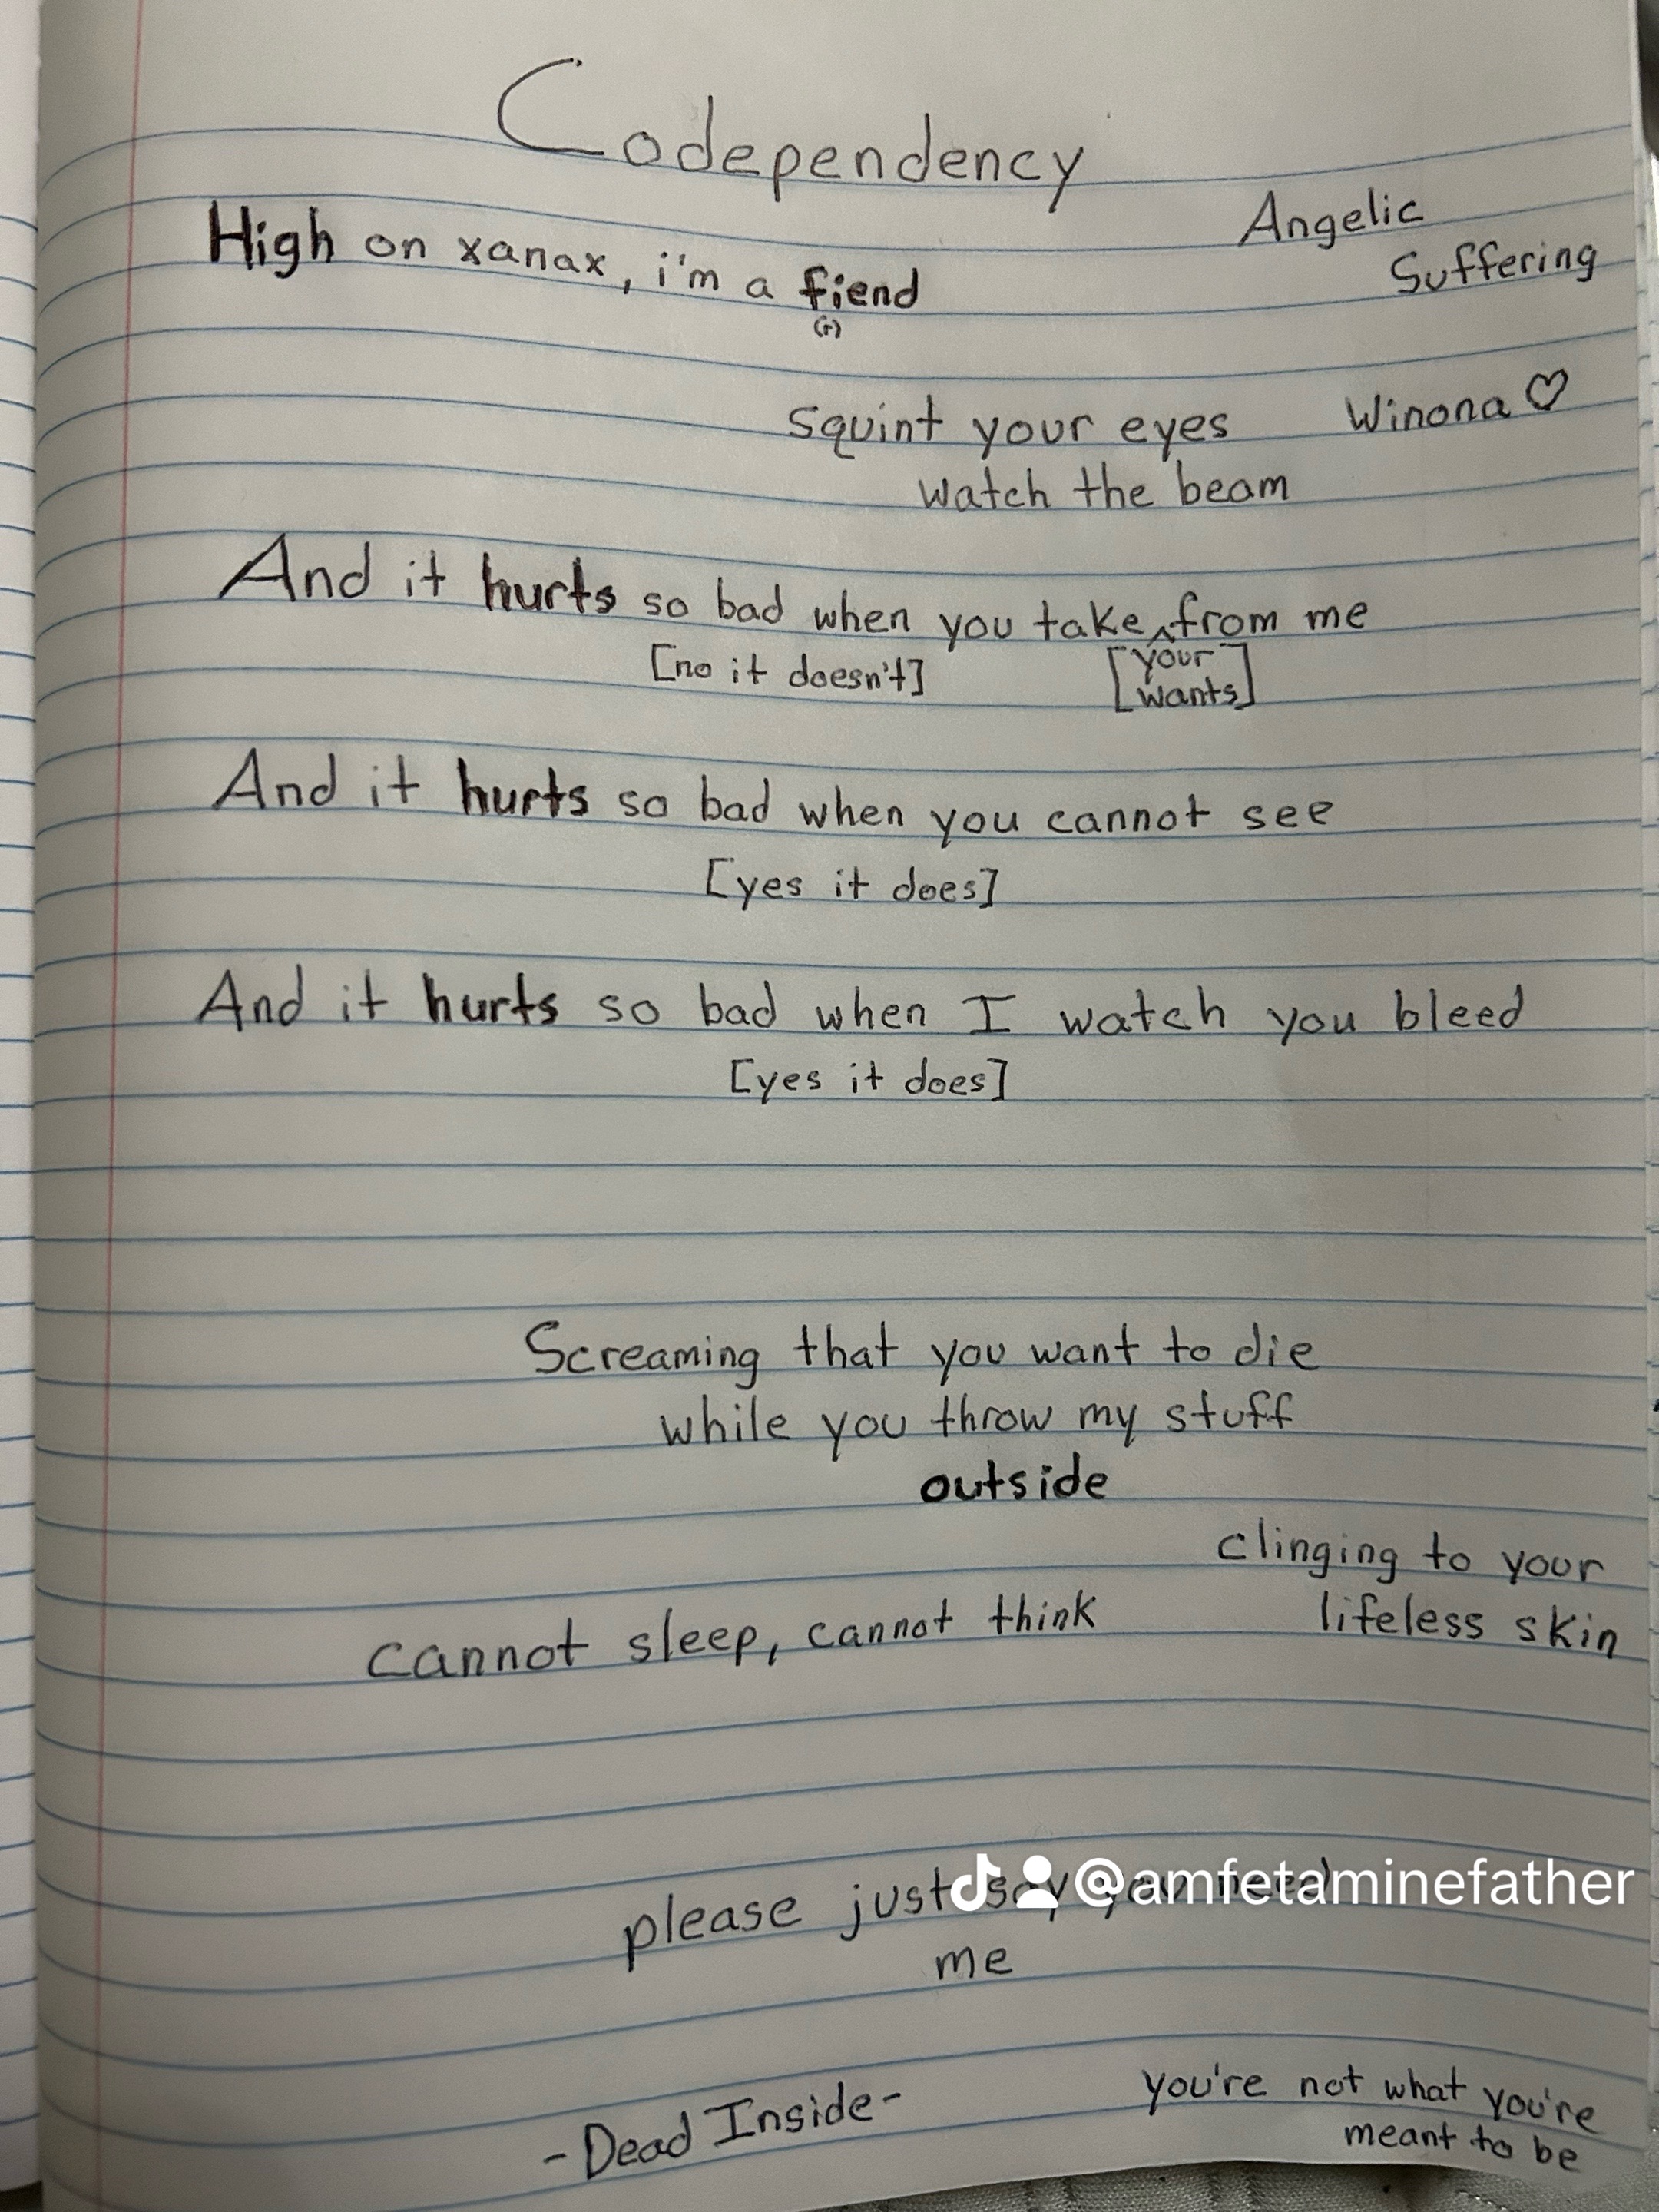 Codependency
Angelic
Suffering
High on xanax, i'm a fiend
(r)
Squint your eyes
watch the beam
Winona ♡
And it hurts so bad when you take ^ from me
[no it doesn't] [your
wants]
And it hurts so bad when you cannot see
[yes it does]
And it hurts so bad when I watch you bleed
[yes it does]
Screaming that you want to die
while you throw my stuff
outside
clinging to your
lifeless skin
cannot sleep, cannot think
please just say you need
me
@amfetaminefather
-Dead Inside-
you're not what you're
meant to be